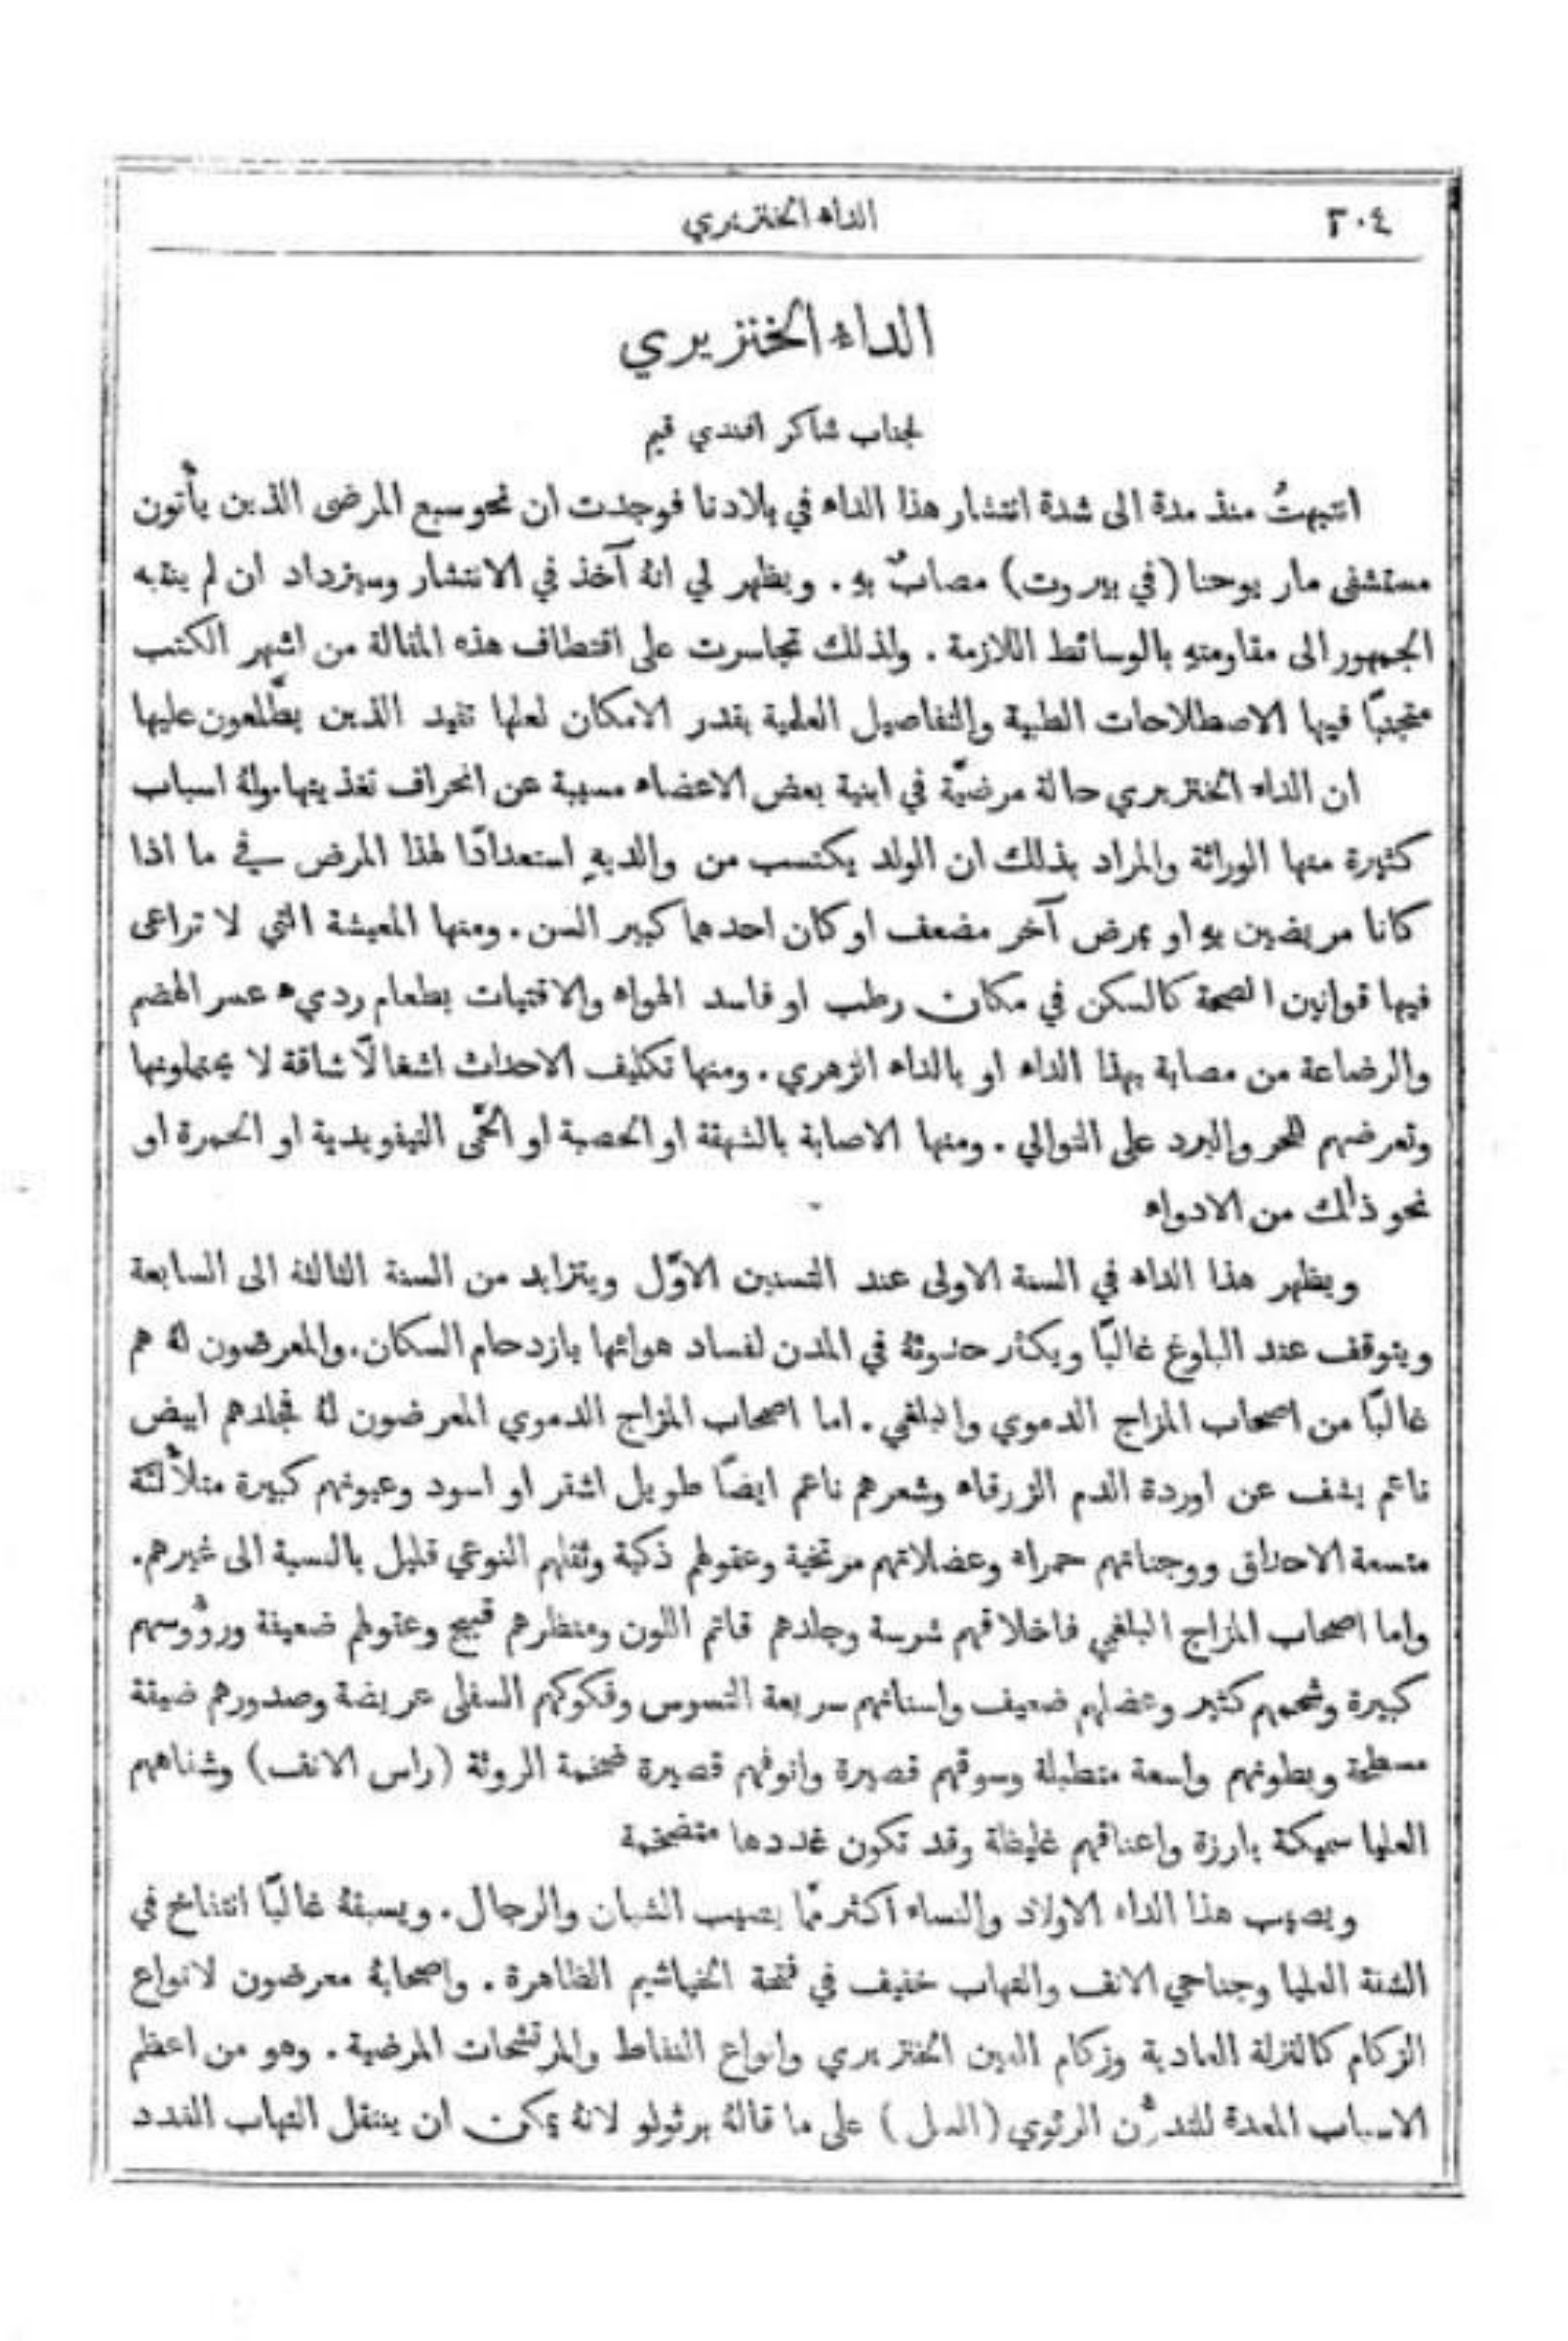 ٣٠٤
الداء الخنزيري
الداء الخنزيري
لجناب شاكر افندي قيم
انتبهتُ منذ مدة الى شدة انتشار هذا الداء في بلادنا فوجدت ان نحو سبع المرضى الذين يأتون
مستشفى مار يوحنا (في بيروت) مصابٌ بهِ . ويظهر لي انهُ آخذ في الانتشار وسيزداد ان لم ينتبه
الجمهور الى مقاومتهِ بالوسائط اللازمة . ولذلك تجاسرت على اقتطاف هذه المقالة من اشهر الكتب
متجنبًا فيها الاصطلاحات الطبية والتفاصيل العلمية بقدر الامكان لعلها تفيد الذين يطَّلعون عليها
ان الداء الخنزيري حالة مرضيَّة في ابنية بعض الاعضاء مسببة عن انحراف تغذيتها. ولهُ اسباب
كثيرة منها الوراثة والمراد بذلك ان الولد يكتسب من والديهِ استعدادًا لهذا المرض في ما اذا
كانا مريضين بهِ او بمرض آخر مضعف او كان احدهما كبير السن . ومنها المعيشة التي لا تراعى
فيها قوانين الصحة كالسكن في مكان رطب او فاسد الهواء والاقتيات بطعام رديء عسر الهضم
والرضاعة من مصابة بهذا الداء او بالداء الزهري . ومنها تكليف الاحداث اشغالًا شاقة لا يحتملونها
وتعرضهم للحر والبرد على التوالي . ومنها الاصابة بالشهقة او الحصبة او الحمَّى التيفويدية او الحمرة او
نحو ذلك من الادواء
ويظهر هذا الداء في السنة الاولى عند التسنين الاوَّل ويتزايد من السنة الثالثة الى السابعة
ويتوقف عند البلوغ غالبًا ويكثر حدوثهُ في المدن لفساد هوائها بازدحام السكان. والمعرضون لهُ هم
غالبًا من اصحاب المزاج الدموي والبلغمي . اما اصحاب المزاج الدموي المعرضون لهُ فجلدهم ابيض
ناعم يشف عن اوردة الدم الزرقاء وشعرهم ناعم ايضًا طويل اشقر او اسود وعيونهم كبيرة متلألئة
متسعة الاحداق ووجناتهم حمراء وعضلاتهم مرتخية وعقولهم ذكية وثقلهم النوعي قليل بالنسبة الى غيرهم.
واما اصحاب المزاج البلغمي فاخلاقهم شرسة وجلدهم قاتم اللون ومنظرهم قبيح وعقولهم ضعيفة ورؤُوسهم
كبيرة وشحمهم كثير وعضلهم ضعيف واسنانهم سريعة التسوس وفكوكهم السفلى عريضة وصدورهم ضيقة
مسطحة وبطونهم واسعة متطبلة وسوقهم قصيرة وانوفهم قصيرة ضخمة الروثة (راس الانف) وشفاههم
العليا سميكة بارزة واعناقهم غليظة وقد تكون غددها متضخمة
ويصيب هذا الداء الاولاد والنساء اكثر ممَّا يصيب الشبان والرجال . ويسبقهُ غالبًا انتفاخ في
الشفة العليا وجناحي الانف والتهاب خفيف في فتحة الخياشيم الظاهرة . واصحابهُ معرضون لانواع
الزكام كالنزلة العادية وزكام العين الخنزيري وانواع النفاط والمرتشحات المرضية . وهو من اعظم
الاسباب المعدة للتدرُّن الرئوي (السل) على ما قالهُ برثولو لانهُ يمكن ان ينتقل التهاب الغدد